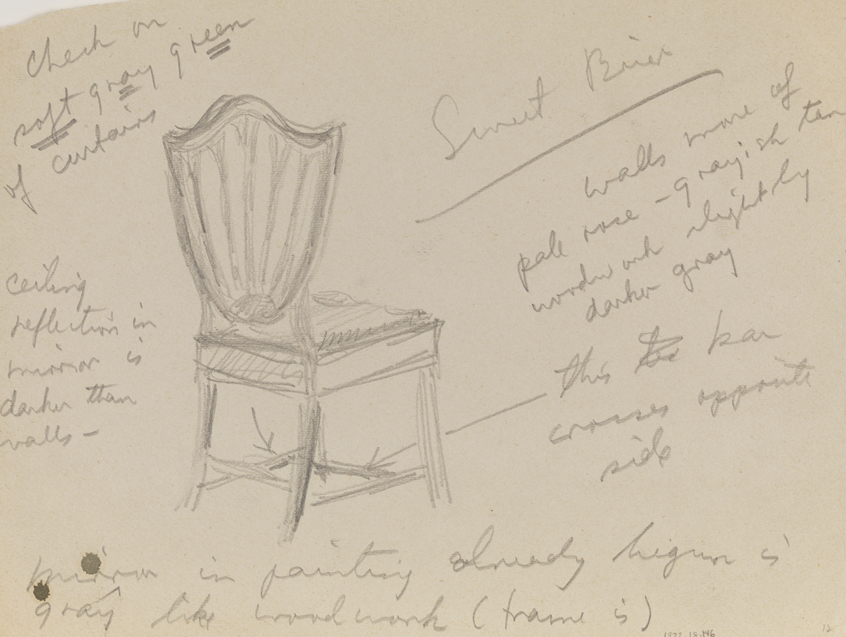 check on
soft gray green
of curtains
Sweet Brier
walls more of
pale rose - grayish tan
woodwork slightly
darker gray
ceiling
reflection in
mirror is
darker than
walls -
this bar
crosses opposite
side
mirror in painting already begun is
gray like woodwork (frame is)